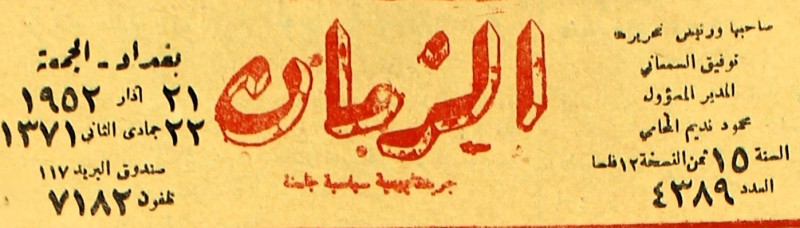 صاحبها ورئيس تحريرها
توفيق السمعاني
المدير المسؤول
محمود نديم المحامي
السنة ١٥ ثمن النسخة ١٢ فلسا
العدد ٤٣٨٩
الزمان
بغداد - الجمعة
٢١ آذار ١٩٥٢
٢٢ جمادى الثاني ١٣٧١
صندوق البريد ١١٧
تلفون ٧١٨٢